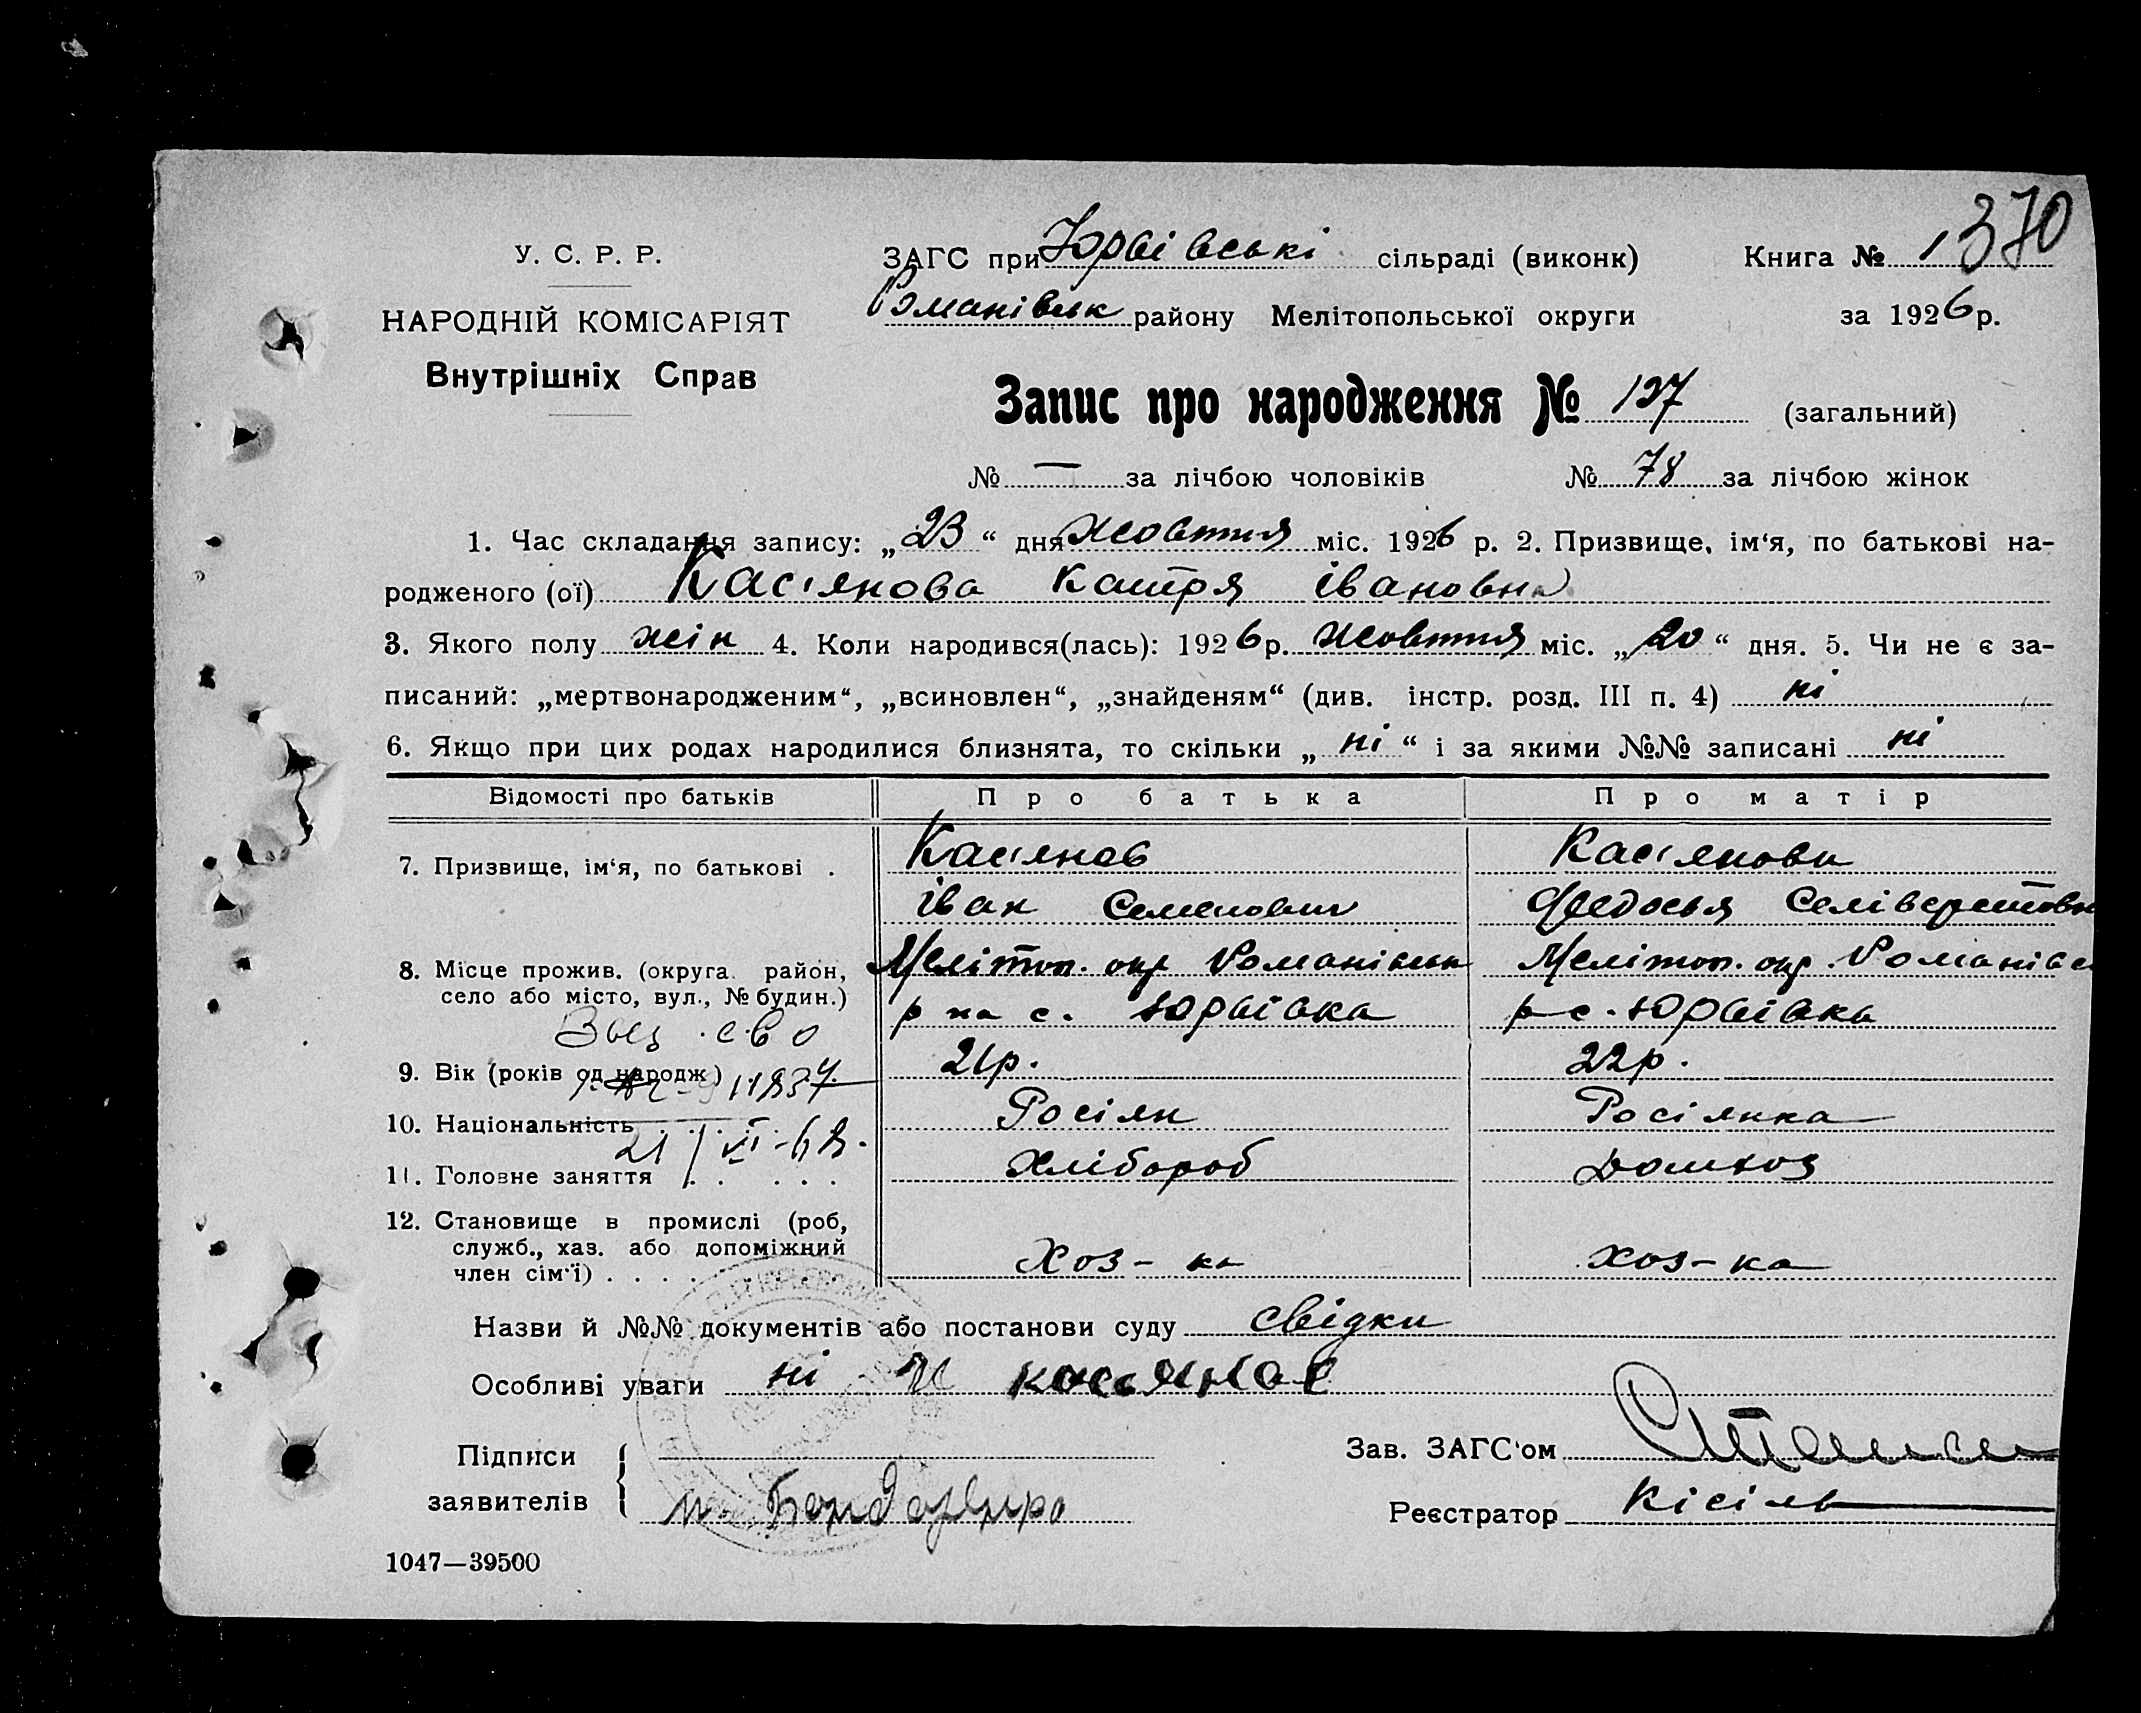 370
У. С. Р. Р.
НАРОДНІЙ КОМІСАРІЯТ
Внутрішніх Справ
ЗАГС при Юрвівські сільраді (виконк) Книга № 1
Романівськ району Мелітопольської округи за 1926 р.
Запис про народження № 137 (загальний)
№ — за лічбою чоловіків № 78 за лічбою жінок
1. Час складання запису: „23“ дня жовтня міс. 1926 р. 2. Призвище, ім‘я, по батькові на-
родженого (ої) Касіянова Катря Івановна
3. Якого полу жін 4. Коли народився(лась): 1926 р. жовтня міс. „20“ дня. 5. Чи не є за-
писаний: „мертвонародженим“, „всиновлен“, „знайденям“ (див. інстр. розд. III п. 4) ні
6. Якщо при цих родах народилися близнята, то скільки „ні“ і за якими №№ записані ні
Відомості про батьків Про батька Про матір
7. Призвище, ім‘я, по батькові . Касіянов Касіянова
Іван Семенович Федосья Селіверстовн
8. Місце прожив. (округа район, Меліт. окр Романівськ Мелітоп. окр. Романівс
село або місто, вул., № будин.) р на с. Юрвівка р с. Юрвівка
9. Вік (років од народж) 21р. 22р.
10. Національність Росіян Росіянка
21/VI-68.
11. Головне заняття . . . . . Хлібороб Домхоз
12. Становище в промислі (роб,
служб., хаз. або допоміжний
член сім‘ї) . . . . Хоз-ка хоз-ка
Назви й №№ документів або постанови суду свідки
Особливі уваги ні И касьянов
Підписи
заявителів
Зав. ЗАГС‘ом
Реєстратор Кісіль
1047—39500